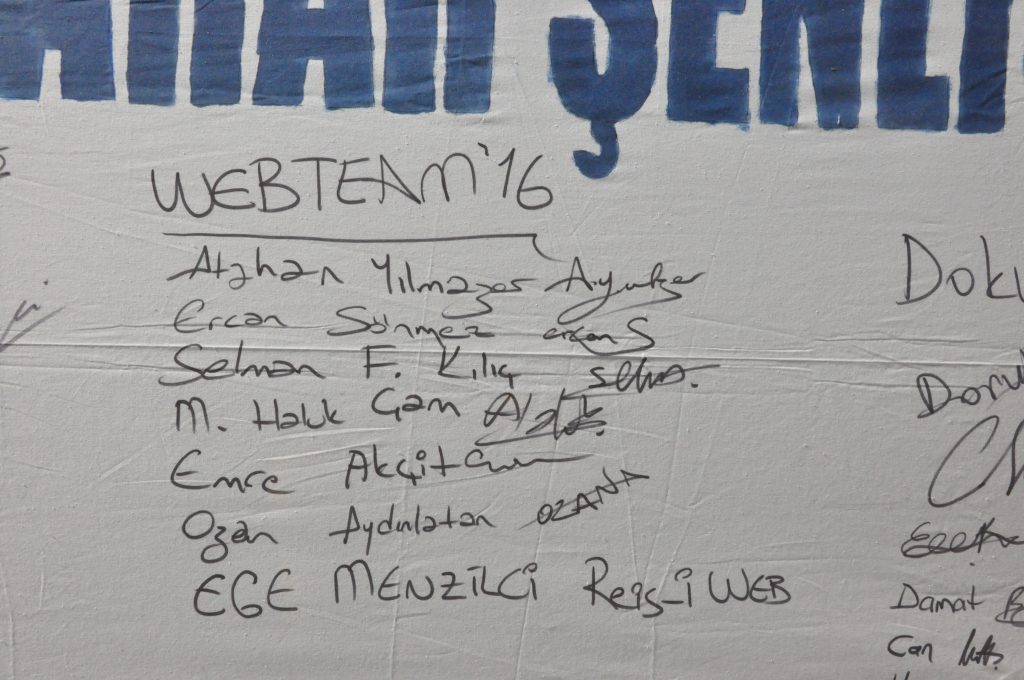 AHAR ŞENLİ
WEBTEAM'16
Atahan Yılmazer
Ercan Sönmez ercanS
Selman F. Kılıç
M. Haluk Çam
Emre Akçit
Ozan Aydınlatan OZANA
EGE MENZİLCİ Reis-i WEB
Doku
Doru
Damat
Can